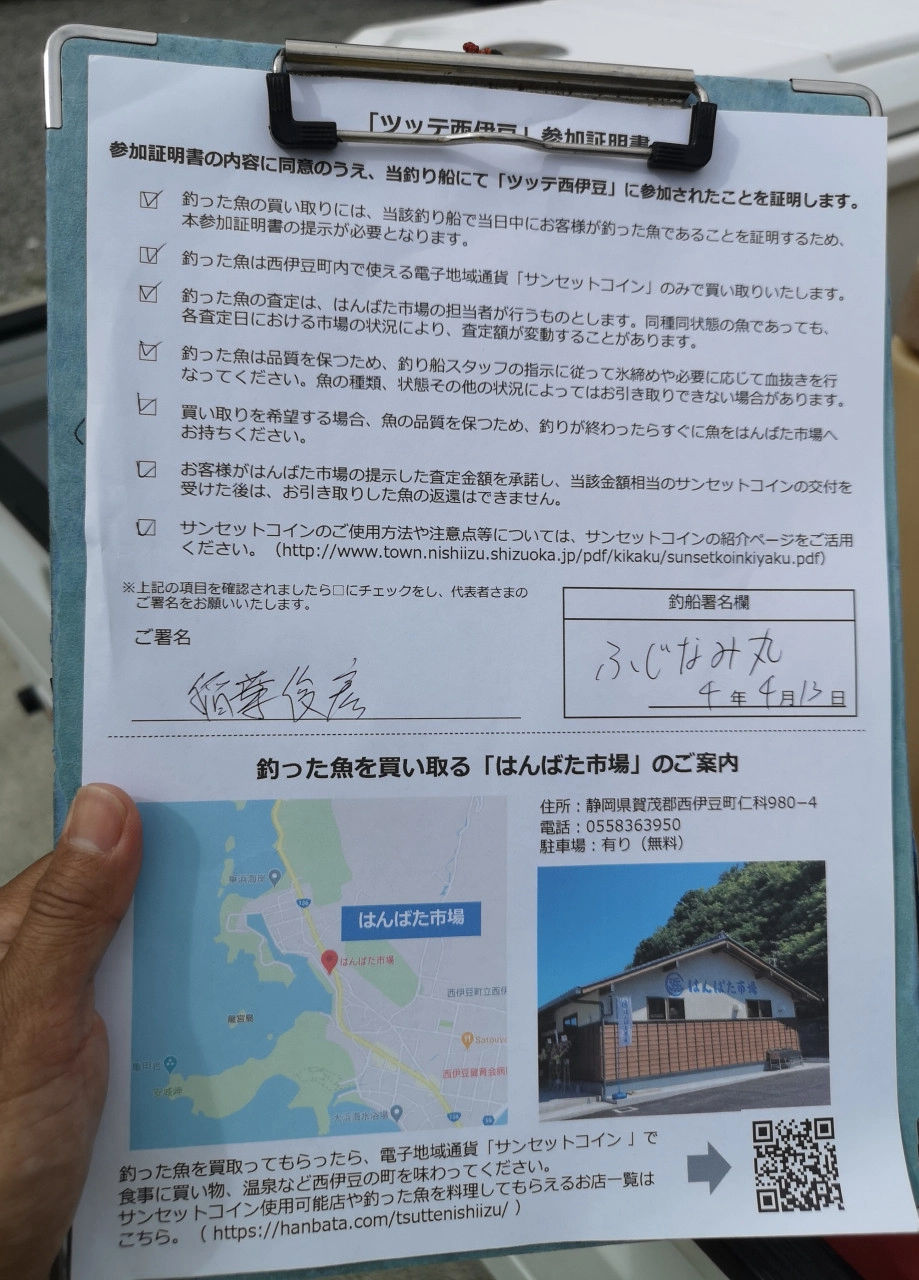 「ツッテ西伊豆」参加証明書
参加証明書の内容に同意のうえ、当釣り船にて「ツッテ西伊豆」に参加されたことを証明します。
釣った魚の買い取りには、当該釣り船で当日中にお客様が釣った魚であることを証明するため、
本参加証明書の提示が必要となります。
釣った魚は西伊豆町内で使える電子地域通貨「サンセットコイン」のみで買い取りいたします。
釣った魚の査定は、はんばた市場の担当者が行うものとします。同種同状態の魚であっても、
各査定日における市場の状況により、査定額が変動することがあります。
釣った魚は品質を保つため、釣り船スタッフの指示に従って氷締めや必要に応じて血抜きを行
なってください。魚の種類、状態その他の状況によってはお引き取りできない場合があります。
買い取りを希望する場合、魚の品質を保つため、釣りが終わったらすぐに魚をはんばた市場へ
お持ちください。
お客様がはんばた市場の提示した査定金額を承諾し、当該金額相当のサンセットコインの交付を
受けた後は、お引き取りした魚の返還はできません。
サンセットコインのご使用方法や注意点等については、サンセットコインの紹介ページをご活用
ください。（http://www.town.nishiizu.shizuoka.jp/pdf/kikaku/sunsetkoinkiyaku.pdf）
※上記の項目を確認されましたら□にチェックをし、代表者さまの
ご署名をお願いいたします。
釣船署名欄
ご署名
稲葉俊宏
ふじなみ丸
4年4月13日
釣った魚を買い取る「はんばた市場」のご案内
住所：静岡県賀茂郡西伊豆町仁科980−4
電話：0558363950
駐車場：有り（無料）
136
はんばた市場
はんばた市場
西伊豆町立西伊
龍宮島
Satouya
西伊豆健育会病
亀甲岩
安城岬
大浜海水浴場
136
59
はんばた市場
釣った魚を買取ってもらったら、電子地域通貨「サンセットコイン 」で
食事に買い物、温泉など西伊豆の町を味わってください。
サンセットコイン使用可能店や釣った魚を料理してもらえるお店一覧は
こちら。（ https://hanbata.com/tsuttenishiizu/ ）